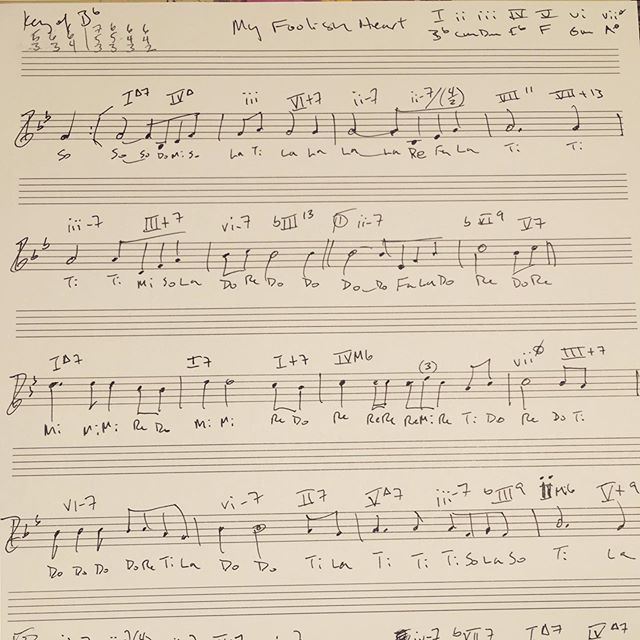 Key of Bb My Foolish Heart I ii iii IV V vi viiø
5 6 6 7 6 6 6 Bb Cm Dm Eb F Gm Aø
3 3 4 5 5 4 4
3 3 2
IΔ7 IVΔ iii VI+7 ii-7 ii-7/(4/2) VII11 VII+13
So So So Do Mi So La Ti La La La La Re Fa La Ti Ti
iii-7 III+7 vi-7 bIII13 ① ii-7 bVI9 V7
Ti Ti Mi So La Do Re Do Do Do Do Fa La Do Re Do Re
IΔ7 I7 I+7 IVM6 (3) viiø III+7
Mi Mi Mi Re Do Mi Mi Re Do Re Re Re Re Mi Re Ti Do Re Do Ti
vi-7 vi-7 II7 VΔ7 iii-7 bIII9 iiMi6 V+9
Do Do Do Do Re Ti La Do Do Ti La Ti Ti Ti So La So Ti La
iv-7 bVII7 IΔ7 IVΔ7